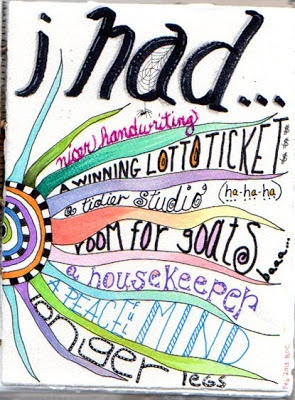 i had...
nicer handwriting
A WINNING LOTTO TICKET
ha ha ha
a tidier studio
(ha-ha-ha)
ROOM FOR goats
baaa...
a housekeeper
A PEACEFUL MIND
longer
legs